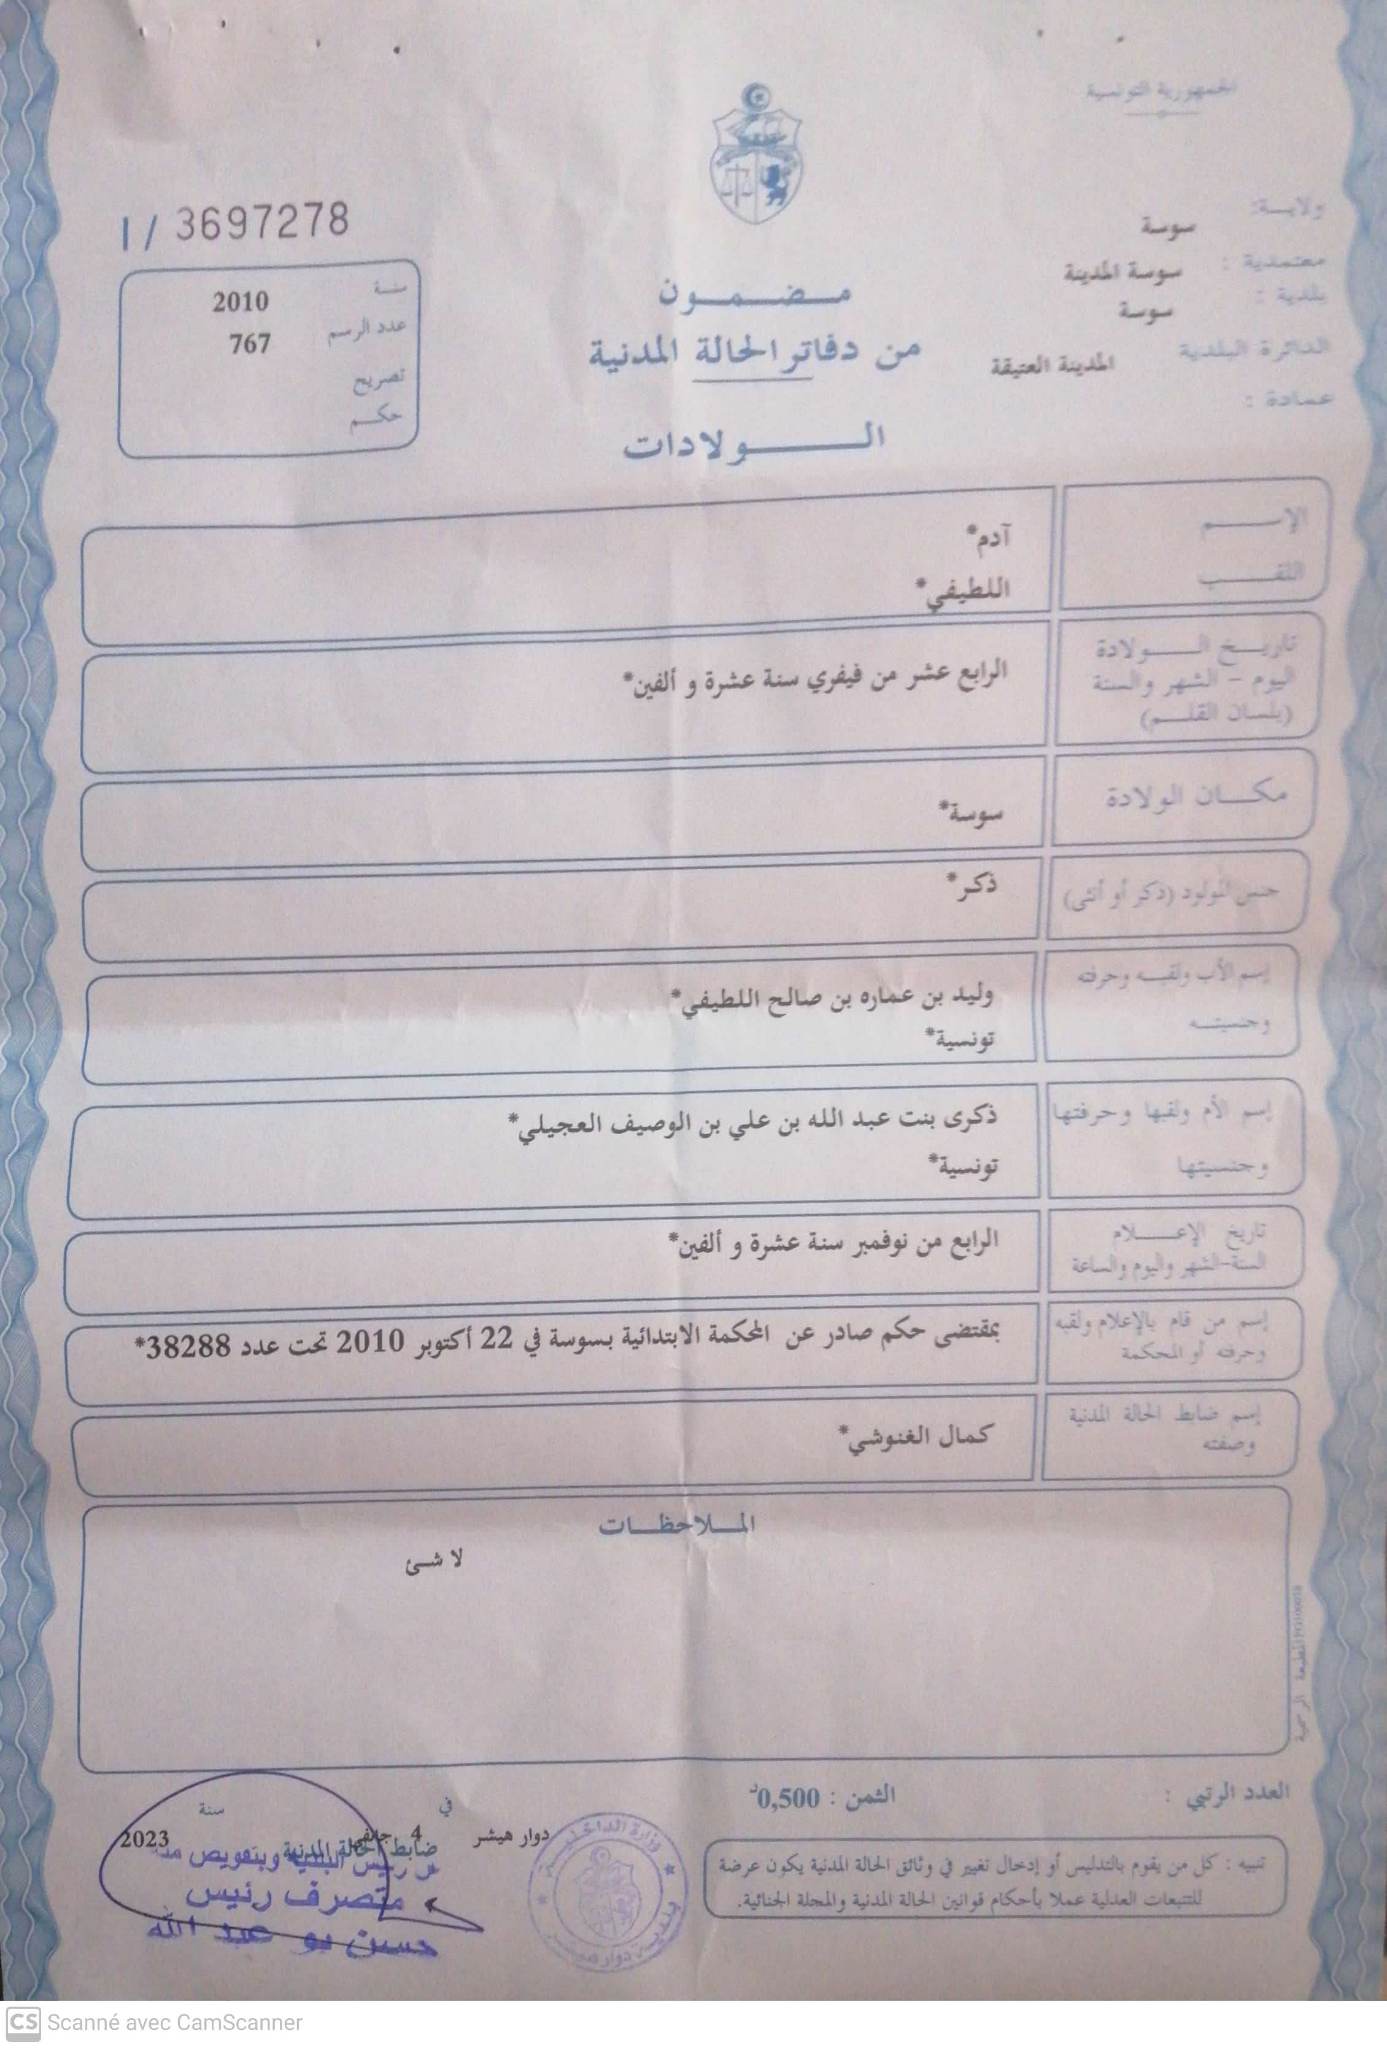 الجمهورية التونسية
ولاية:
سوسة
معتمدية :
سوسة المدينة
بلدية :
سوسة
الدائرة البلدية
المدينة العتيقة
عمادة :
مضمون
من دفاتر الحالة المدنية
الولادات
I / 3697278
سنة 2010
عدد الرسم 767
تصريح
حكم
الإسم
آدم*
اللقب
اللطيفي*
تاريخ الولادة
اليوم - الشهر والسنة
(بلسان القلم)
الرابع عشر من فيفري سنة عشرة و ألفين*
مكان الولادة
سوسة*
جنس المولود (ذكر أو أنثى)
ذكر*
إسم الأب ولقبه وحرفته
وجنسيته
وليد بن عماره بن صالح اللطيفي*
تونسية*
إسم الأم ولقبها وحرفتها
وجنسيتها
ذكرى بنت عبد الله بن علي بن الوصيف العجيلي*
تونسية*
تاريخ الإعلام
السنة-الشهر واليوم والساعة
الرابع من نوفمبر سنة عشرة و ألفين*
إسم من قام بالإعلام ولقبه
وحرفته أو المحكمة
بمقتضى حكم صادر عن المحكمة الابتدائية بسوسة في 22 أكتوبر 2010 تحت عدد 38288*
إسم ضابط الحالة المدنية
وصفته
كمال الغنوشي*
الملاحظات
لا شئ
المطبعة الرسمية
العدد الرتبي :
الثمن : 0,500د
تنبيه : كل من يقوم بالتدليس أو إدخال تغيير في وثائق الحالة المدنية يكون عرضة
للتتبعات العدلية عملا بأحكام قوانين الحالة المدنية والمجلة الجنائية.
في سنة
دوار هيشر 4 جانفي 2023
ضابط الحالة المدنية
عن رئيس البلدية وبتفويض منه
متصرف رئيس
حسين بو عبد الله
وزارة الداخلية
بلدية دوار هيشر
CS Scanné avec CamScanner